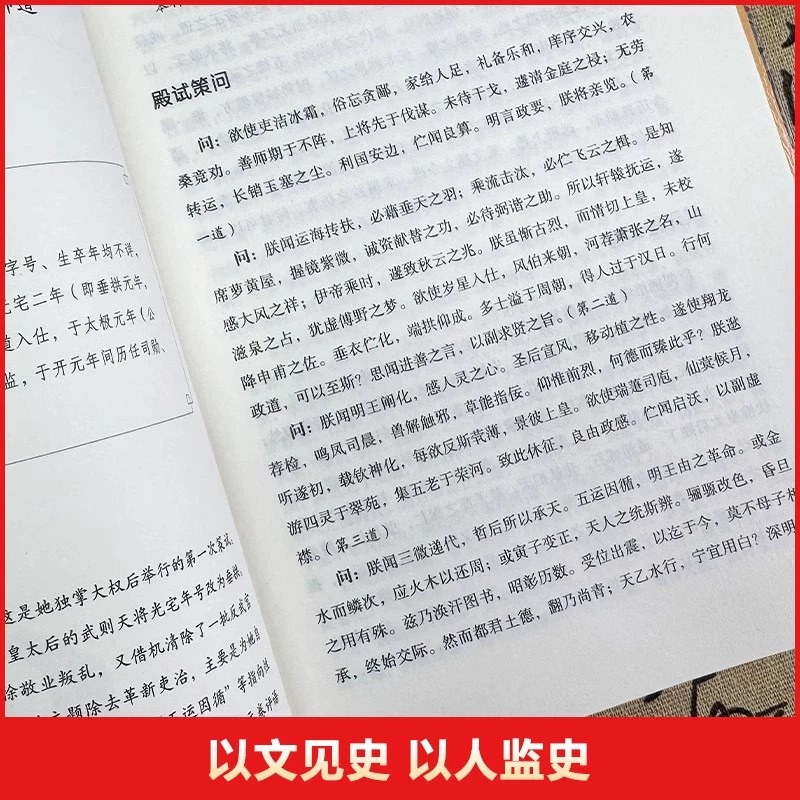 字号、生卒年均不详，
光宅二年（即垂拱元年，
道入仕，于太极元年（公
监，于开元年间历任司勋、
这是她独掌大权后举行的第一次策试，
皇太后的武则天将光宅年号改为垂拱，
徐敬业叛乱，又借机清除了一批反武官
主题除去革新吏治，主要是为她自
五运因循”等指向性
殿试策问
问：欲使吏洁冰霜，俗忘贪鄙，家给人足，礼备乐和，庠序交兴，农
桑竞劝。善师期于不阵，上将先于伐谋。未待干戈，遽清金庭之祲；无劳
转运，长销玉塞之尘。利国安边，伫闻良算。明言政要，朕将亲览。（第
一道）
问：朕闻运海抟扶，必藉垂天之羽；乘流击汰，必伫飞云之楫。是知
席萝黄屋，握镜紫微，诚资献替之功，必待弼谐之助。所以轩辕抚运，遂
感大风之祥；伊帝乘时，遽致秋云之兆。朕虽惭古烈，而情切上皇，未校
滋泉之占，犹虚傅野之梦。欲使岁星入仕，风伯来朝，河荐萧张之名，山
降申甫之佐。垂衣伫化，端拱仰成。多士溢于周朝，得人过于汉日。行何
政道，可以至斯？思闻进善之言，以副求贤之旨。（第二道）
问：朕闻明王阐化，感人灵之心。圣后宣风，移动植之性。遂使翔龙
荐检，鸣凤司晨，兽解触邪，草能指佞。仰惟前烈，何德而臻此乎？朕逖
听遂初，载钦神化，每欲反斯茕薄，景彼上皇。欲使瑞莲司庖，仙蓂候月，
游四灵于翠苑，集五老于荣河。致此休征，良由政感。伫闻启沃，以副虚
襟。（第三道）
问：朕闻三微递代，哲后所以承天。五运因循，明王由之革命。或金
水而鳞次，应火木以还周；或寅子变正，天人之统斯辨。骊騵改色，昏旦
之用有殊。兹乃涣汗图书，昭彰历数。受位出震，以迄于今，莫不母子相
承，终始交际。然而都君土德，翻乃尚青；天乙水行，宁宜用白？深明
以文见史 以人监史